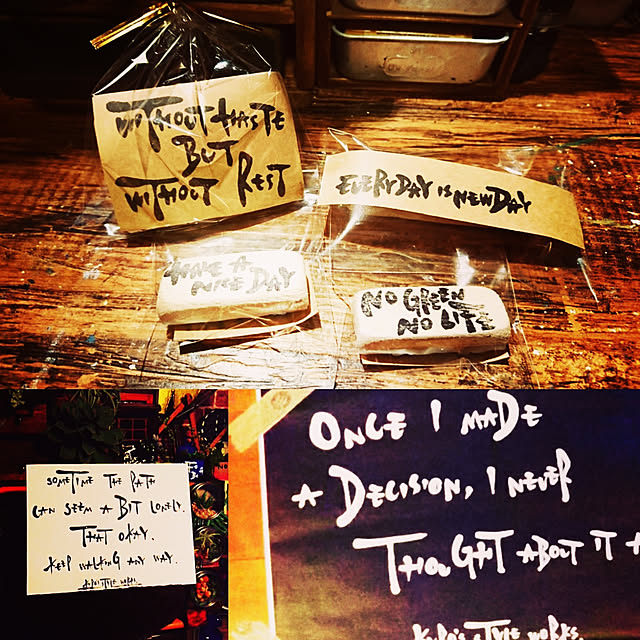 WITHOUT HASTE
BUT
WITHOUT REST
EVERYDAY IS NEW DAY
HAVE A
NICE DAY
NO GREEN
NO LIFE
SOMETIME THE PATH
CAN SEEM A BIT LONELY.
THAT OKAY.
KEEP WALKING ANY WAY.
ONCE I MADE
A DECISION, I NEVER
THOUGHT ABOUT IT A
STYLE WORKS.